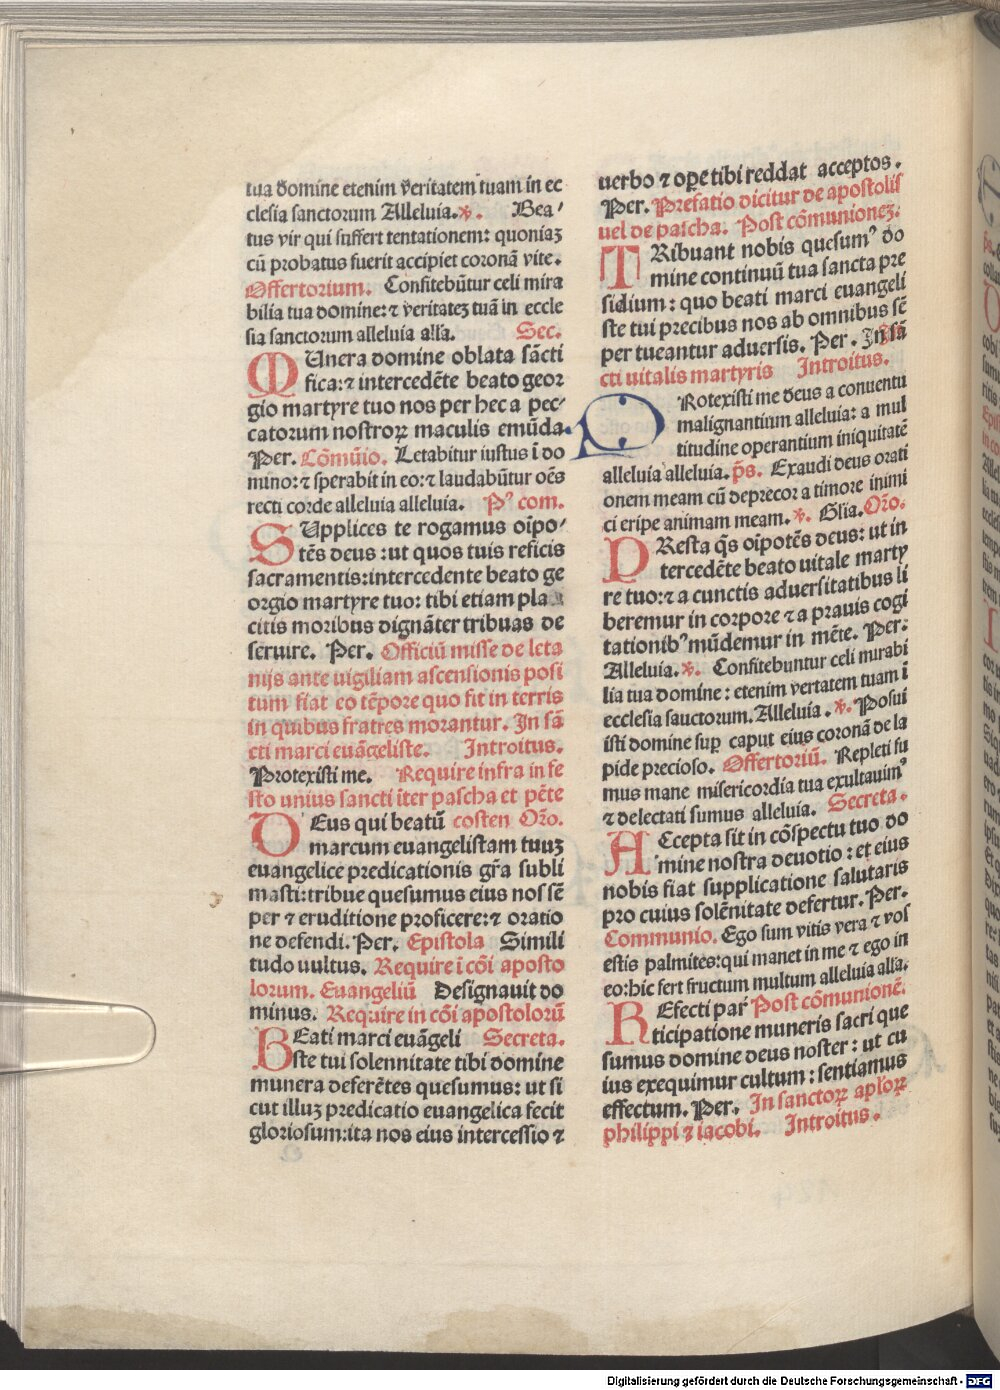 tua domine etenim veritatem tuam in ec
clesia sanctorum Alleluia. ℣. Bea⸗
tus vir qui suffert tentationem: quoniaꝫ
cũ probatus fuerit accipiet coronã vite.
Offertorium. Confitebũtur celi mira
bilia tua domine: ⁊ veritateꝫ tuã in eccle
sia sanctorum alleluia alła. Sec.
MUnera domine oblata sãcti
fica: ⁊ intercedẽte beato geor
gio martyre tuo nos per hec a pec⸗
catorum nostroꝝ maculis emũda.
Per. Cõmũio. Letabitur iustus ĩ do
mino: ⁊ sperabit in eo: ⁊ laudabũtur oẽs
recti corde alleluia alleluia. Pꝰ com.
SUpplices te rogamus oĩpo⸗
tẽs deus: ut quos tuis reficis
sacramentis: intercedente beato ge
orgio martyre tuo: tibi etiam pla
citis moribus dignãter tribuas de
seruire. Per. Officiũ misse de leta
nijs ante uigiliam ascensionis posi
tum fiat eo tẽpore quo fit in terris
in quibus fratres morantur. In sã
cti marci euãgeliste. Introitus.
Protexisti me. Require infra in fe
sto unius sancti ĩter pascha et pẽte
DEus qui beatũ costen Oro.
marcum euangelistam tuuꝫ
euangelice predicationis gr̃a subli
masti: tribue quesumus eius nos sẽ
per ⁊ eruditione proficere: ⁊ oratio
ne defendi. Per. Epistola Simili
tudo uultus. Require ĩ cõi aposto
lorum. Euangeliũ Designauit do
minus. Require in cõi apostolorũ
BEati marci euãgeli Secreta.
ste tui solennitate tibi domine
munera deferẽtes quesumus: ut si
cut illuꝫ predicatio euangelica fecit
gloriosum: ita nos eius intercessio ⁊
uerbo ⁊ oꝑe tibi reddat acceptos.
Per. Prefatio dicitur de apostolis
uel de pascha. Post cõmunioneꝫ.
TRibuant nobis quesumꝰ do
mine continuũ tua sancta pre
sidium: quo beati marci euangeli
ste tui precibus nos ab omnibus sẽ
per tueantur aduersis. Per. In sã
cti uitalis martyris Introitus.
PRotexisti me deus a conuentu
malignantium alleluia: a mul
titudine operantium iniquitatẽ
alleluia alleluia. p̃s. Exaudi deus orati
onem meam cũ deprecor a timore inimi
ci eripe animam meam. ℣. Glia. Oro.
PResta q̃s oĩpotẽs deus: ut in
tercedẽte beato uitale marty
re tuo: ⁊ a cunctis aduersitatibus li
beremur in corpore ⁊ a prauis cogi
tationibꝰ mũdemur in mẽte. Per.
Alleluia. ℣. Confitebuntur celi mirabi
lia tua domine: etenim vertatem tuam ĩ
ecclesia sauctorum. Alleluia. ℣. Posui
isti domine suꝑ caput eius coronã de la
pide precioso. Offertoriũ. Repleti su
mus mane misericordia tua exultauimꝰ
⁊ delectati sumus alleluia. Secreta.
ACcepta sit in cõspectu tuo do
mine nostra deuotio: et eius
nobis fiat supplicatione salutaris
pro cuius solẽnitate defertur. Per.
Communio. Ego sum vitis vera ⁊ vos
estis palmites: qui manet in me ⁊ ego in
eo: hic fert fructum multum alleluia alła.
REfecti par Post cõmunionẽ.
ticipatione muneris sacri que
sumus domine deus noster: ut cu
ius exequimur cultum: sentiamus
effectum. Per. In sanctoꝝ apl'oꝝ
philippi ⁊ iacobi. Introitus.
Digitalisierung gefördert durch die Deutsche Forschungsgemeinschaft - DFG